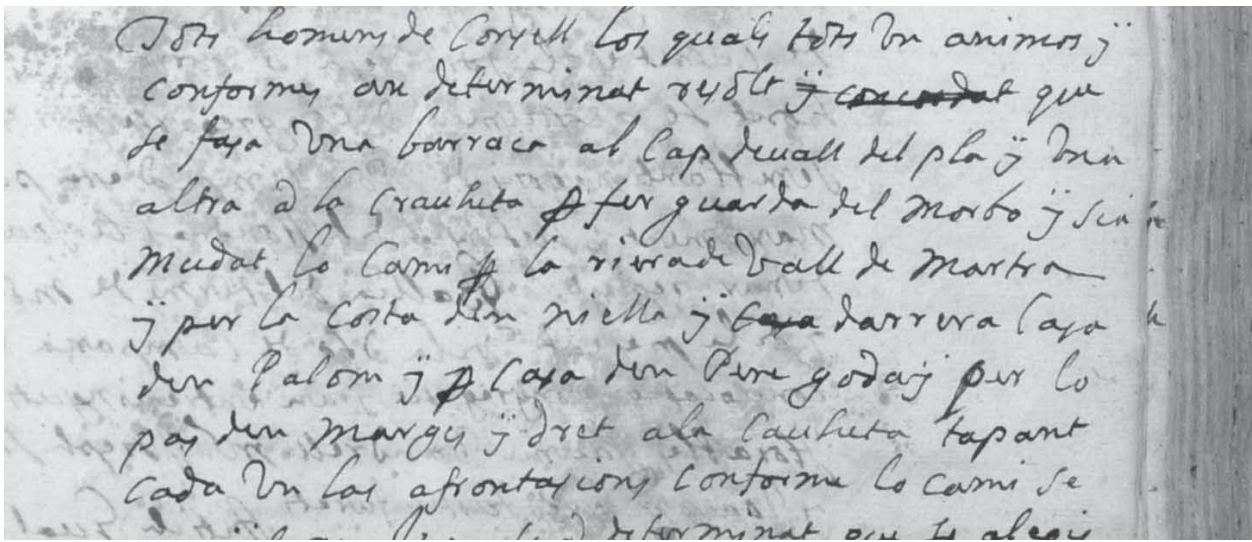 Tots homens de Consell los quals tots un animos ÿ
conformes an determinat resolt ÿ concordat que
se fasa una barraca al Cap devall del pla ÿ una
altra a la crauheta p fer guarda del morbo ÿ sia
mudat lo Cami p la riera de vall de martra
ÿ per la Costa den niella ÿ casa darrera Casa
den Palom ÿ p Casa den Pere godaÿ per lo
pas den marges ÿ dret a la Cauheta tapant
cada un las afrontasions Conforme lo cami se
determinat que